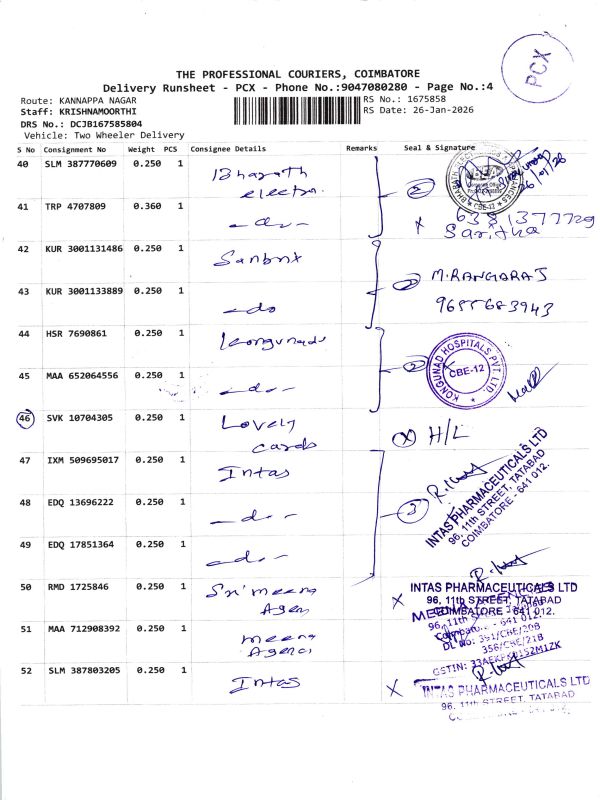 PCX
THE PROFESSIONAL COURIERS, COIMBATORE
Delivery Runsheet - PCX - Phone No.:9047080280 - Page No.:4
Route: KANNAPPA NAGAR
RS No.: 1675858
Staff: KRISHNAMOORTHI
RS Date: 26-Jan-2026
DRS No.: DCJB167585804
Vehicle: Two Wheeler Delivery
S No Consignment No Weight PCS Consignee Details Remarks Seal & Signature
40 SLM 387770609 0.250 1 Bharath electro. 2
26/01/26
CBE-12
41 TRP 4707809 0.360 1 -do- x 6381377729
Saritha
42 KUR 3001131486 0.250 1 Sanbrix
2 M.RANGARAJ
43 KUR 3001133889 0.250 1 -do 9655683943
44 HSR 7690861 0.250 1 Kongunadu
2 KONGUNAD HOSPITALS PVT. LTD.
CBE-12
45 MAA 652064556 0.250 1 -do-
46 SVK 10704305 0.250 1 Lovely cards x H/L
47 IXM 509695017 0.250 1 Intas
3
INTAS PHARMACEUTICALS LTD
96, 11th STREET, TATABAD
COIMBATORE - 641 012.
48 EDQ 13696222 0.250 1 -do-
49 EDQ 17851364 0.250 1 -do-
50 RMD 1725846 0.250 1 Sri meena Agen x
INTAS PHARMACEUTICALS LTD
96, 11th STREET, TATABAD
COIMBATORE - 641 012.
51 MAA 712908392 0.250 1 meena Agenci
DL No: 391/CBE/20B
356/CBE/21B
52 SLM 387803205 0.250 1 Intas x
INTAS PHARMACEUTICALS LTD
96, 11th STREET, TATABAD